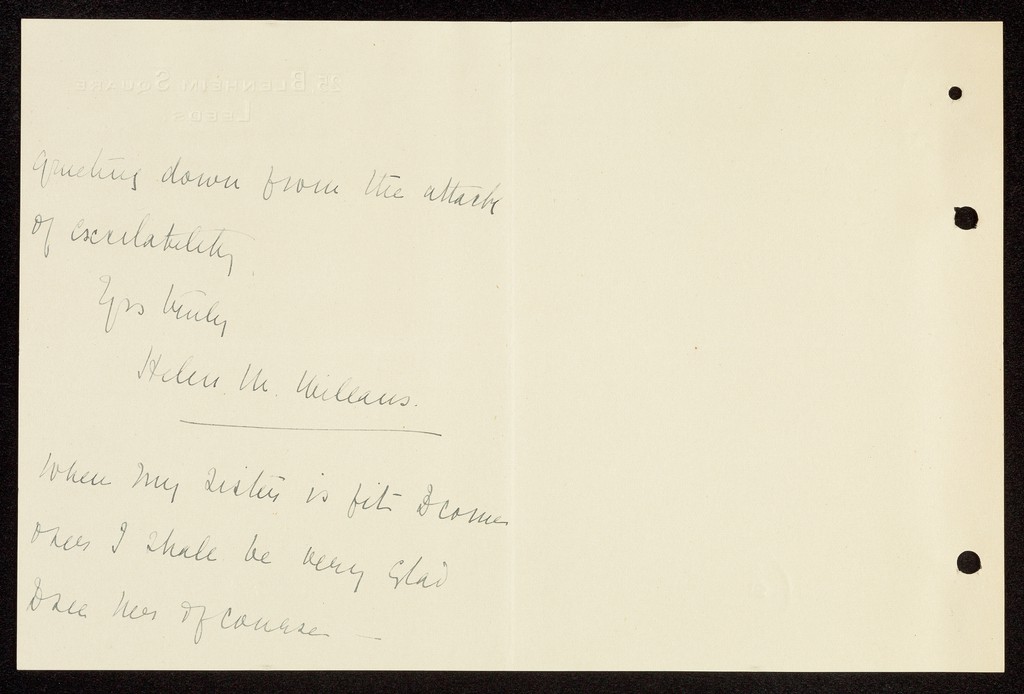 25, BLENHEIM SQUARE
LEEDS
quieting down from the attack
of excitability
Yrs truly
Helen. M. Willans.
When my Sister is fit to come
over I shall be very glad
to see her of course —